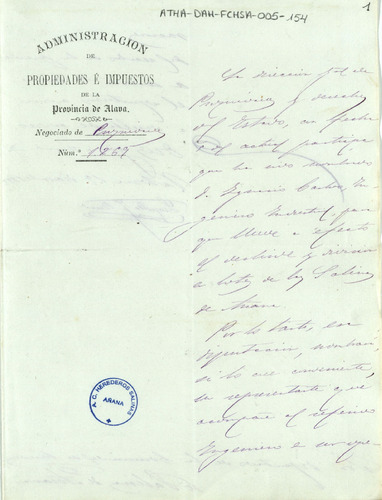 ATHA-DAH-FCHSA-005-154
1
ADMINISTRACION
DE
PROPIEDADES É IMPUESTOS
DE LA
Provincia de Alava.
Negociado de
Núm.º 1269
La Direccion Gral de
Propiedades y derechos
del Estado, con fecha
del actual participa
que ha sido nombrado
D. Ignacio
que lleve a efecto
el deslinde y division
a lotes de las Salinas
de Añana
Por lo tanto, esa
Diputacion, nombrará
si lo cree conveniente,
un representante que
acompañe al referido
Ingeniero
A. C. HEREDEROS SALINAS
AÑANA